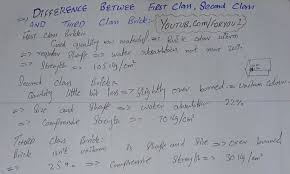 => DIFFERENCE BETWEE FIRST Class, Second Class
AND THIRD Class Brick:- YOUTUBE.COM/FORYOU1
First class Bricks
Good quality raw material => Size uniform
=> regular shape => water absorption not more 20%
=> Strength => 105 kg/cm²
Second class Bricks
Quality little bit less => slightly over burned => uniform colour
=> Size and Shape => water absorption 22%
=> Compressive Strength => 70 kg/cm²
THIRD Class Brick:
Brick isn't uniform in Shape and Size => over burned
=> 25% => Compressive Strength => 30 kg/cm²